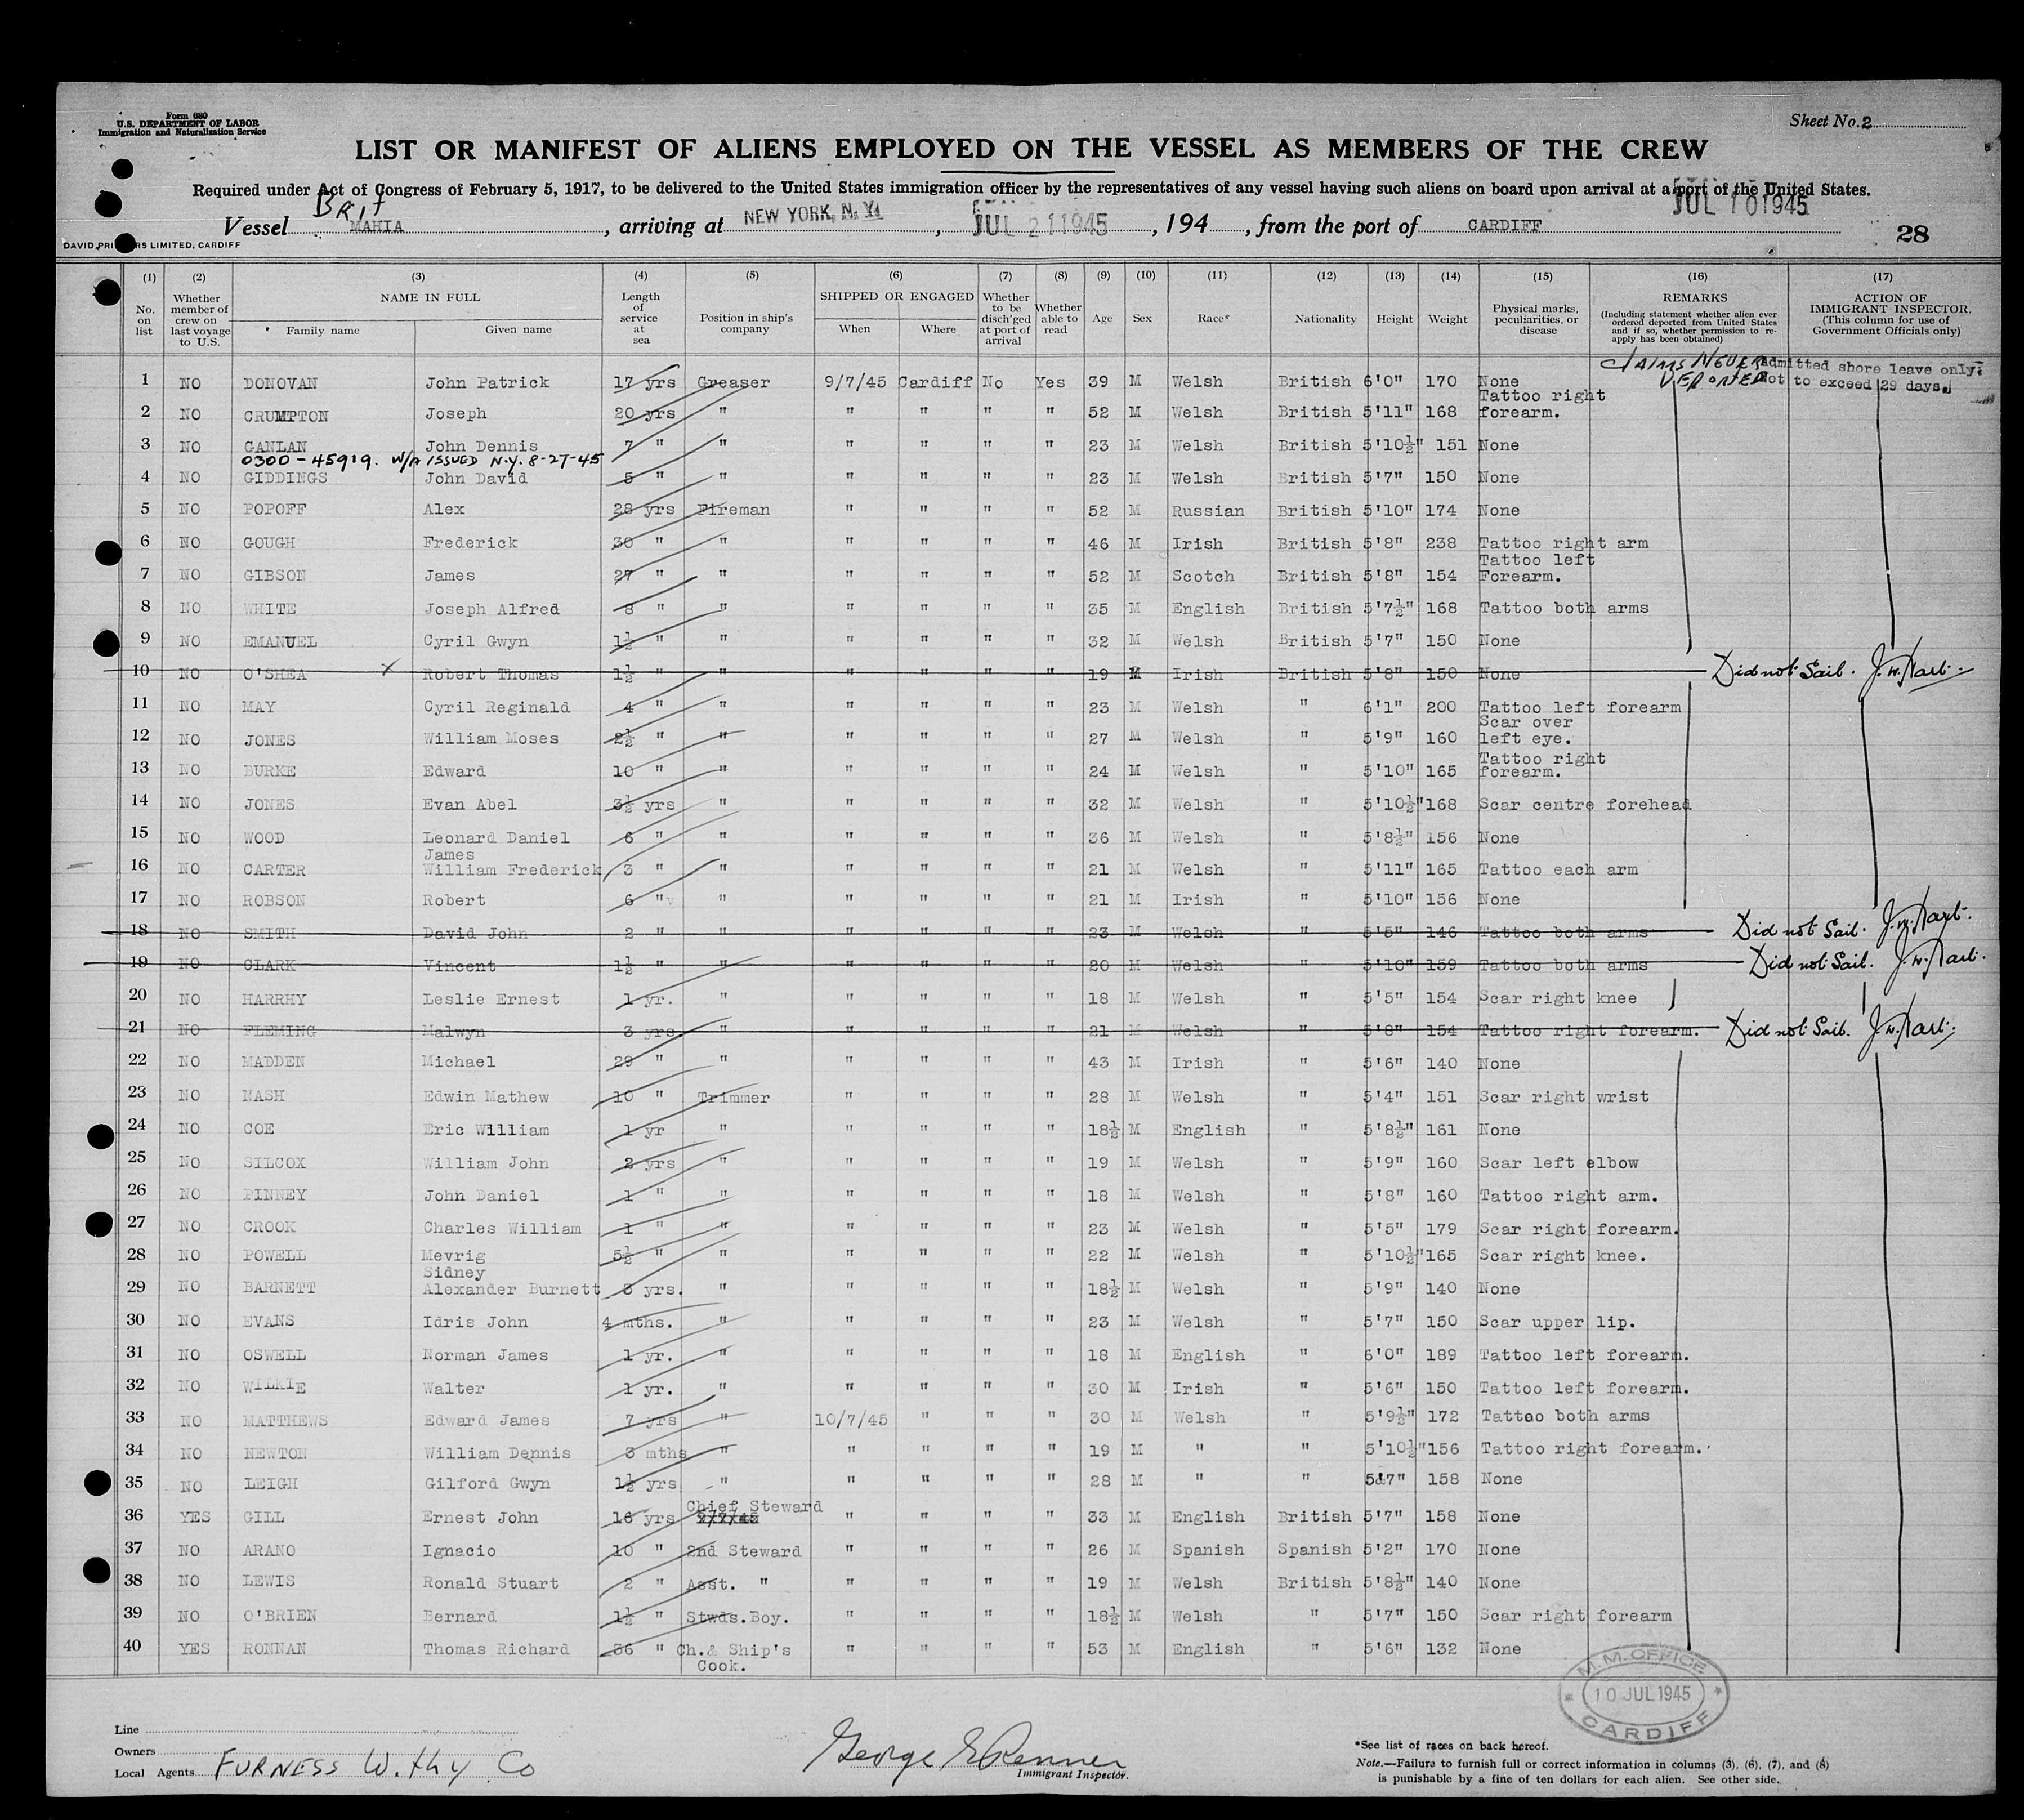 Form 680
U.S. DEPARTMENT OF LABOR
Immigration and Naturalization Service
Sheet No. 2
LIST OR MANIFEST OF ALIENS EMPLOYED ON THE VESSEL AS MEMBERS OF THE CREW
Required under Act of Congress of February 5, 1917, to be delivered to the United States immigration officer by the representatives of any vessel having such aliens on board upon arrival at a port of the United States.
Brit
Vessel MAHIA, arriving at NEW YORK, N.Y. , JUL 21 1945, 194 , from the port of CARDIFF JUL 10 1945
DAVID PRI RS LIMITED, CARDIFF
28
(1) (2) (3) (4) (5) (6) (7) (8) (9) (10) (11) (12) (13) (14) (15) (16) (17)
No. on list | Whether member of crew on last voyage to U.S. | NAME IN FULL Family name Given name | Length of service at sea | Position in ship's company | SHIPPED OR ENGAGED When Where | Whether to be disch'ged at port of arrival | Whether able to read | Age | Sex | Race* | Nationality | Height | Weight | Physical marks, peculiarities, or disease | REMARKS (Including statement whether alien ever ordered deported from United States and if so, whether permission to re-apply has been obtained) | ACTION OF IMMIGRANT INSPECTOR. (This column for use of Government Officials only)
Claims Never Deported
Admitted shore leave only.
Not to exceed 29 days.
1 NO DONOVAN John Patrick 17 yrs Greaser 9/7/45 Cardiff No Yes 39 M Welsh British 6'0" 170 None
2 NO CRUMPTON Joseph 20 yrs " " " " " 52 M Welsh British 5'11" 168 Tattoo right forearm.
3 NO GANLAN John Dennis 7 " " " " " " 23 M Welsh British 5'10½" 151 None
0300-45919. W/A ISSUED N.Y. 8-27-45
4 NO GIDDINGS John David 5 " " " " " " 23 M Welsh British 5'7" 150 None
5 NO POPOFF Alex 28 yrs Fireman " " " " 52 M Russian British 5'10" 174 None
6 NO GOUGH Frederick 30 " " " " " " 46 M Irish British 5'8" 238 Tattoo right arm
7 NO GIBSON James 27 " " " " " " 52 M Scotch British 5'8" 154 Tattoo left Forearm.
8 NO WHITE Joseph Alfred 8 " " " " " " 35 M English British 5'7½" 168 Tattoo both arms
9 NO EMANUEL Cyril Gwyn 1½ " " " " " " 32 M Welsh British 5'7" 150 None
10 NO O'SHEA x Robert Thomas 1½ " " " " " " 19 M Irish British 5'8" 150 None Did not Sail. J.W.Hart.
11 NO MAY Cyril Reginald 4 " " " " " " 23 M Welsh " 6'1" 200 Tattoo left forearm
12 NO JONES William Moses 2½ " " " " " " 27 M Welsh " 5'9" 160 Scar over left eye.
13 NO BURKE Edward 10 " " " " " " 24 M Welsh " 5'10" 165 Tattoo right forearm.
14 NO JONES Evan Abel 3½ yrs " " " " " 32 M Welsh " 5'10½" 168 Scar centre forehead
15 NO WOOD Leonard Daniel 6 " " " " " " 36 M Welsh " 5'8½" 156 None
16 NO CARTER James William Frederick 3 " " " " " " 21 M Welsh " 5'11" 165 Tattoo each arm
17 NO ROBSON Robert 6 " " " " " " 21 M Irish " 5'10" 156 None
18 NO SMITH David John 2 " " " " " " 23 M Welsh " 5'5" 146 Tattoo both arms Did not Sail. J.W.Hart.
19 NO CLARK Vincent 1½ " " " " " " 20 M Welsh " 5'10" 159 Tattoo both arms Did not Sail. J.W.Hart.
20 NO HARRHY Leslie Ernest 1 yr. " " " " " 18 M Welsh " 5'5" 154 Scar right knee
21 NO FLEMING Malwyn 3 yrs " " " " " 21 M Welsh " 5'8" 154 Tattoo right forearm. Did not Sail. J.W.Hart.
22 NO MADDEN Michael 29 " " " " " " 43 M Irish " 5'6" 140 None
23 NO NASH Edwin Mathew 10 " Trimmer " " " " 28 M Welsh " 5'4" 151 Scar right wrist
24 NO COE Eric William 1 yr " " " " " 18½ M English " 5'8½" 161 None
25 NO SILCOX William John 2 yrs " " " " " 19 M Welsh " 5'9" 160 Scar left elbow
26 NO PINNEY John Daniel 1 " " " " " " 18 M Welsh " 5'8" 160 Tattoo right arm.
27 NO CROOK Charles William 1 " " " " " " 23 M Welsh " 5'5" 179 Scar right forearm.
28 NO POWELL Mevrig 5½ " " " " " " 22 M Welsh " 5'10½" 165 Scar right knee.
29 NO BARNETT Sidney Alexander Burnett 3 yrs. " " " " " 18½ M Welsh " 5'9" 140 None
30 NO EVANS Idris John 4 mths. " " " " " 23 M Welsh " 5'7" 150 Scar upper lip.
31 NO OSWELL Norman James 1 yr. " " " " " 18 M English " 6'0" 189 Tattoo left forearm.
32 NO WILKIE Walter 1 yr. " " " " " 30 M Irish " 5'6" 150 Tattoo left forearm.
33 NO MATTHEWS Edward James 7 yrs " 10/7/45 " " " 30 M Welsh " 5'9½" 172 Tattoo both arms
34 NO NEWTON William Dennis 8 mths " " " " " 19 M " " 5'10½" 156 Tattoo right forearm.
35 NO LEIGH Gilford Gwyn 1½ yrs " " " " " 28 M " " 5'7" 158 None
36 YES GILL Ernest John 16 yrs Chief Steward " " " " 33 M English British 5'7" 158 None
37 NO ARANO Ignacio 10 " 2nd Steward " " " " 26 M Spanish Spanish 5'2" 170 None
38 NO LEWIS Ronald Stuart 2 " Asst. " " " " " 19 M Welsh British 5'8½" 140 None
39 NO O'BRIEN Bernard 1½ " Stwds.Boy. " " " " 18½ M Welsh " 5'7" 150 Scar right forearm
40 YES RONNAN Thomas Richard 36 " Ch.& Ship's Cook. " " " " 53 M English " 5'6" 132 None
M.M. OFFICE
10 JUL 1945
CARDIFF
Line
Owners
Local Agents Furness Withy Co
George E Renner
Immigrant Inspector.
*See list of races on back hereof.
Note.—Failure to furnish full or correct information in columns (3), (6), (7), and (8)
is punishable by a fine of ten dollars for each alien. See other side.